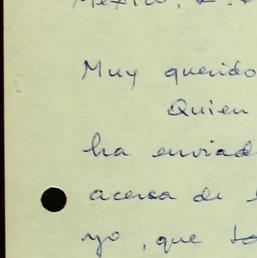 Muy querido
Quien
ha enviad
acerca de
yo, que